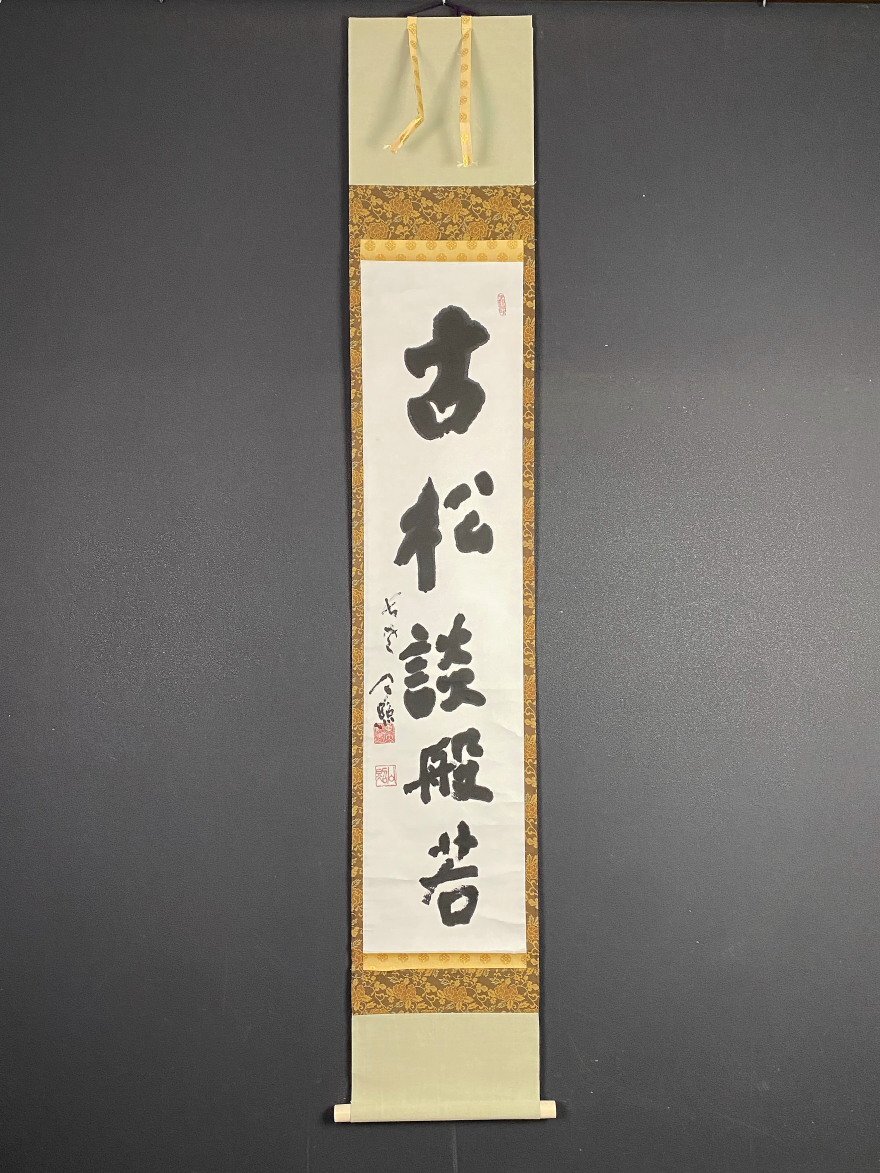 古松談般若